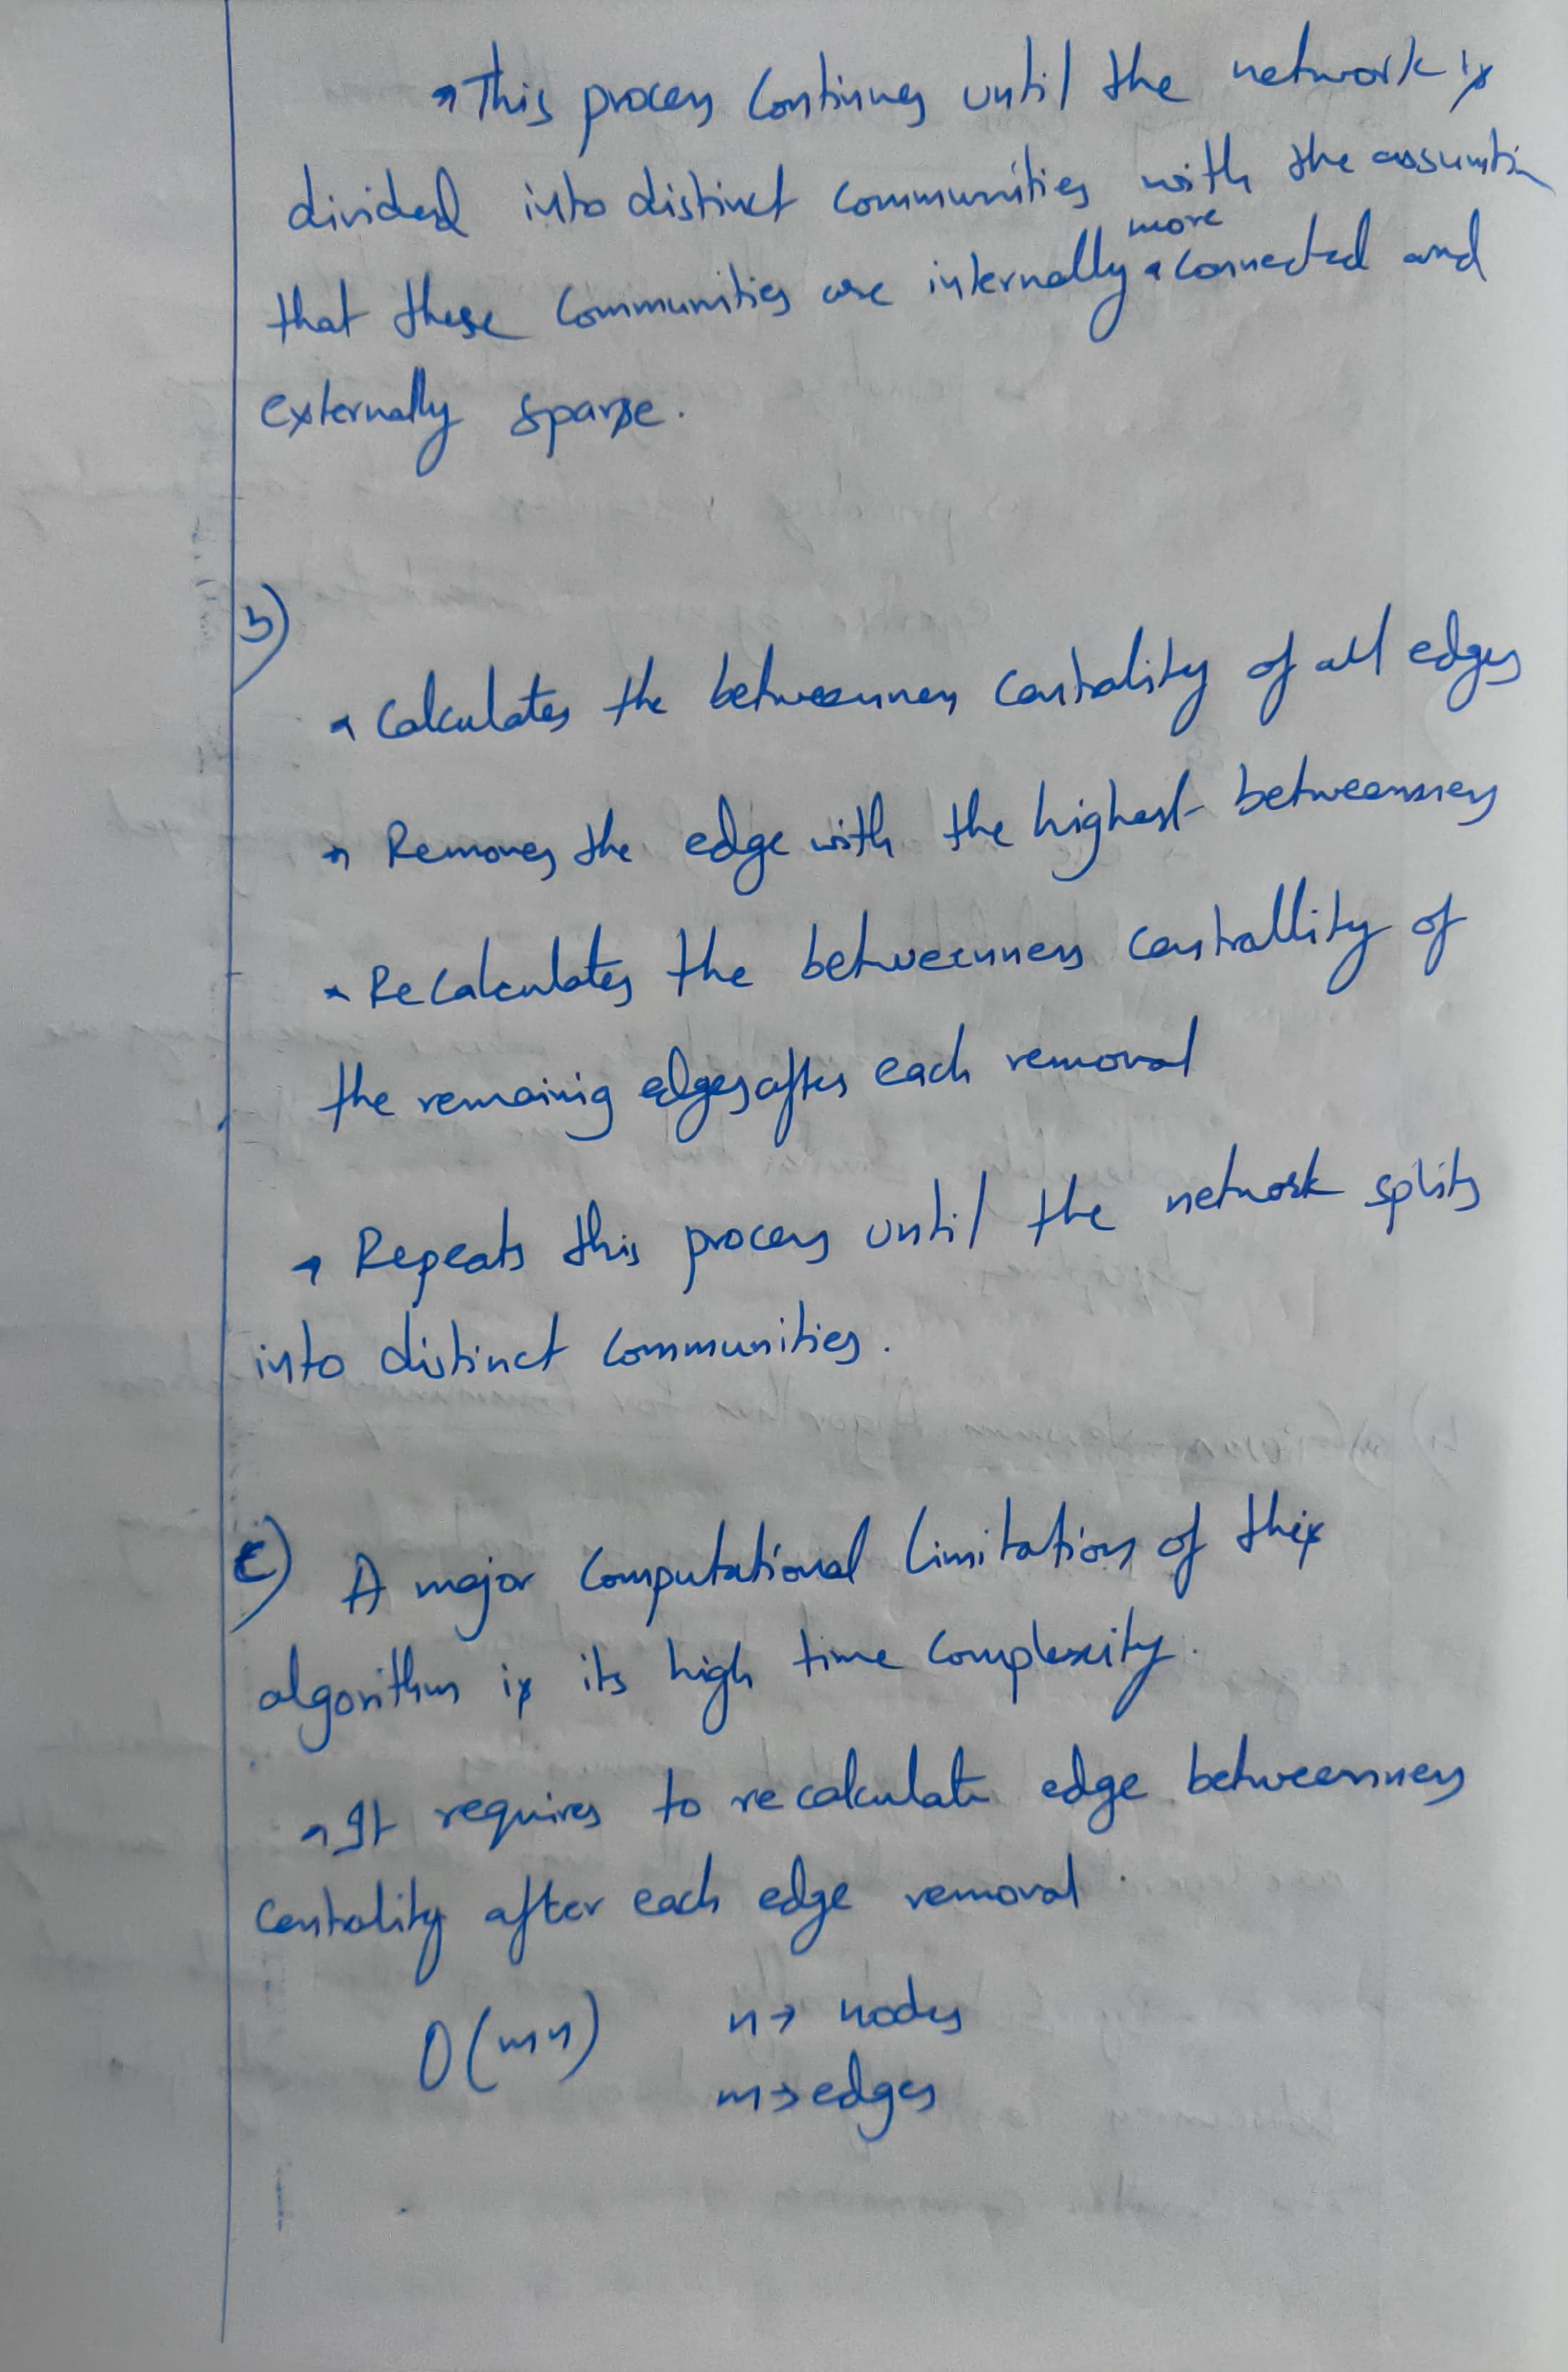 → This process continues until the network is
divided into distinct communities with the assumtion
more
that these communities are internally connected and
externally sparse.
b)
→ Calculates the betweenness centrality of all edges
→ Removes the edge with the highest betweenness
→ Recalculates the betweenness centrallity of
the remainig edges after each removal
→ Repeats this process until the network splits
into distinct communities.
c) A major computational limitation of this
algorithm is its high time complexity.
→ It requires to recalculate edge betweenness
centrality after each edge removal.
O(mn) n → nodes
m → edges